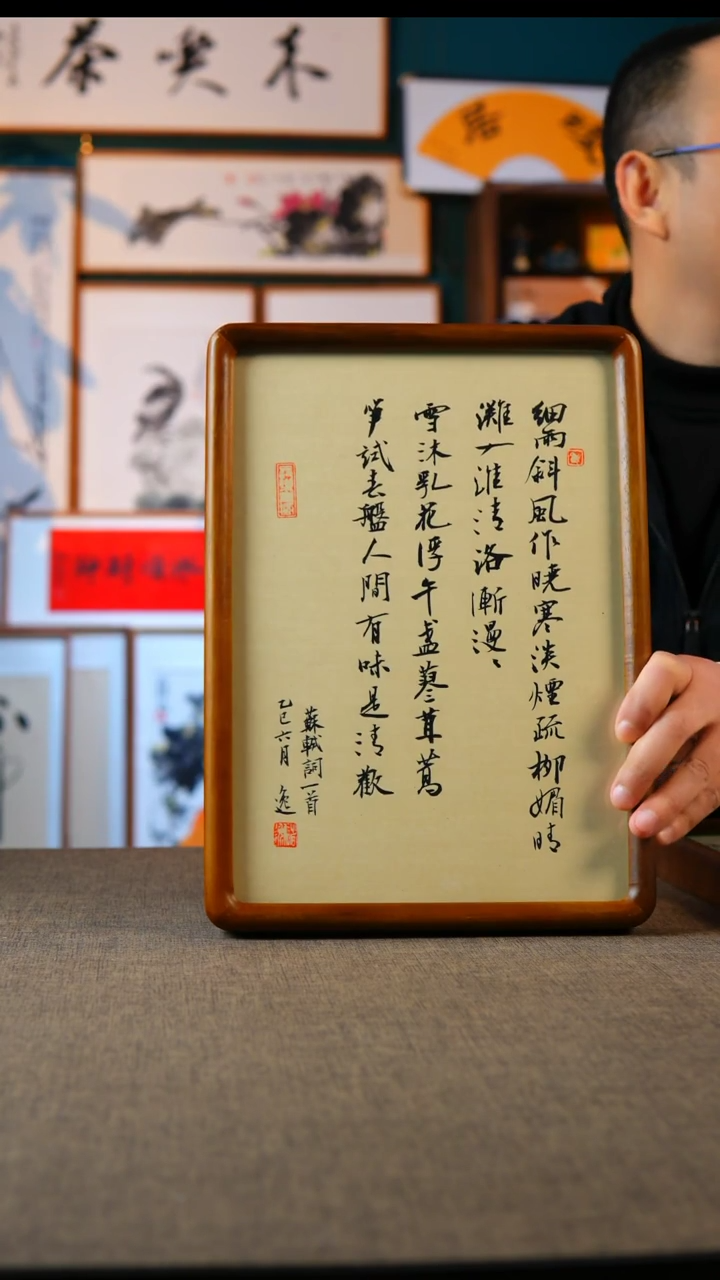 喫茶
細雨斜風作曉寒淡煙疏柳媚晴
灘入淮清洛漸漫〻
雪沫乳花浮午盞蓼茸蒿
筍試春盤人間有味是清歡
蘇軾詞一首
乙巳六月 逸